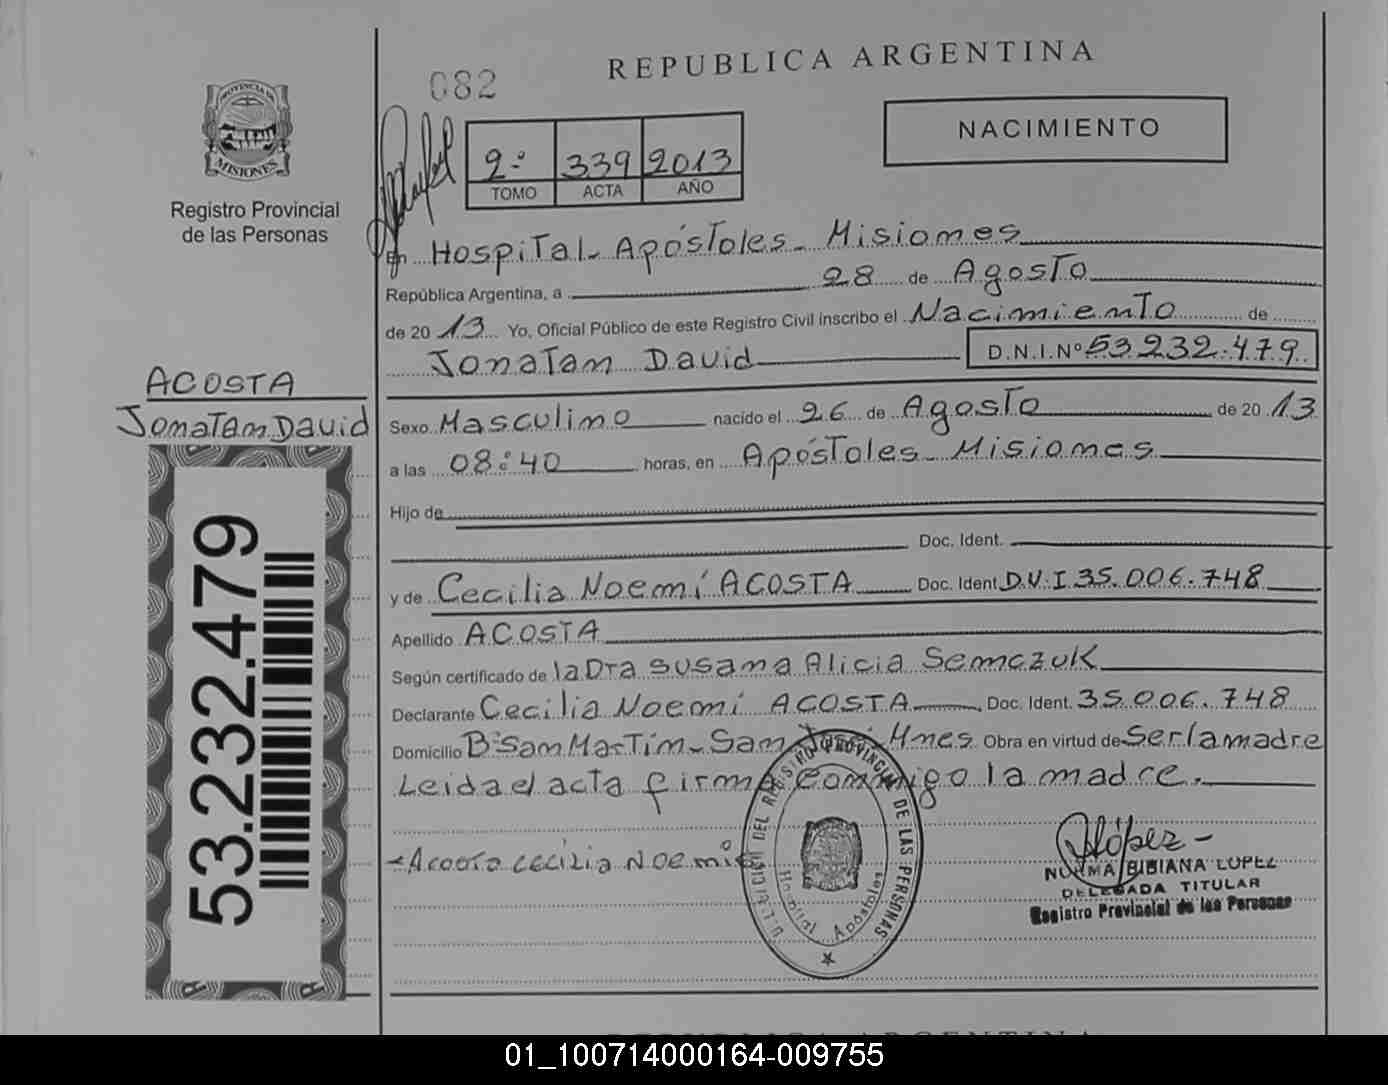 REPUBLICA ARGENTINA
082
NACIMIENTO
PROVINCIA DE
MISIONES
Registro Provincial
de las Personas
2º 339 2013
TOMO ACTA AÑO
En Hospital Apóstoles - Misiones
República Argentina, a 28 de Agosto
de 2013 Yo, Oficial Público de este Registro Civil inscribo el Nacimiento de
Jonatan David D.N.I.Nº 53.232.479.
ACOSTA
Jonatan David
Sexo Masculino nacido el 26 de Agosto de 2013
a las 08:40 horas, en Apóstoles - Misiones
Hijo de
Doc. Ident.
y de Cecilia Noemí ACOSTA Doc. Ident D.N.I 35.006.748
Apellido ACOSTA
Según certificado de la Dra Susana Alicia Semczuk
Declarante Cecilia Noemí ACOSTA Doc. Ident. 35.006.748
Domicilio Bº San Martín - San José Mnes Obra en virtud de Ser la madre
Leida el acta firma conmigo la madre.
Acosta Cecilia Noemi
DEL REGISTRO PROVINCIAL DE LAS PERSONAS
Hospital Apostoles
López
NORMA BIBIANA LOPEZ
DELEGADA TITULAR
Registro Provincial de las Personas
53.232.479
REPUBLICA ARGENTINA
01_100714000164-009755